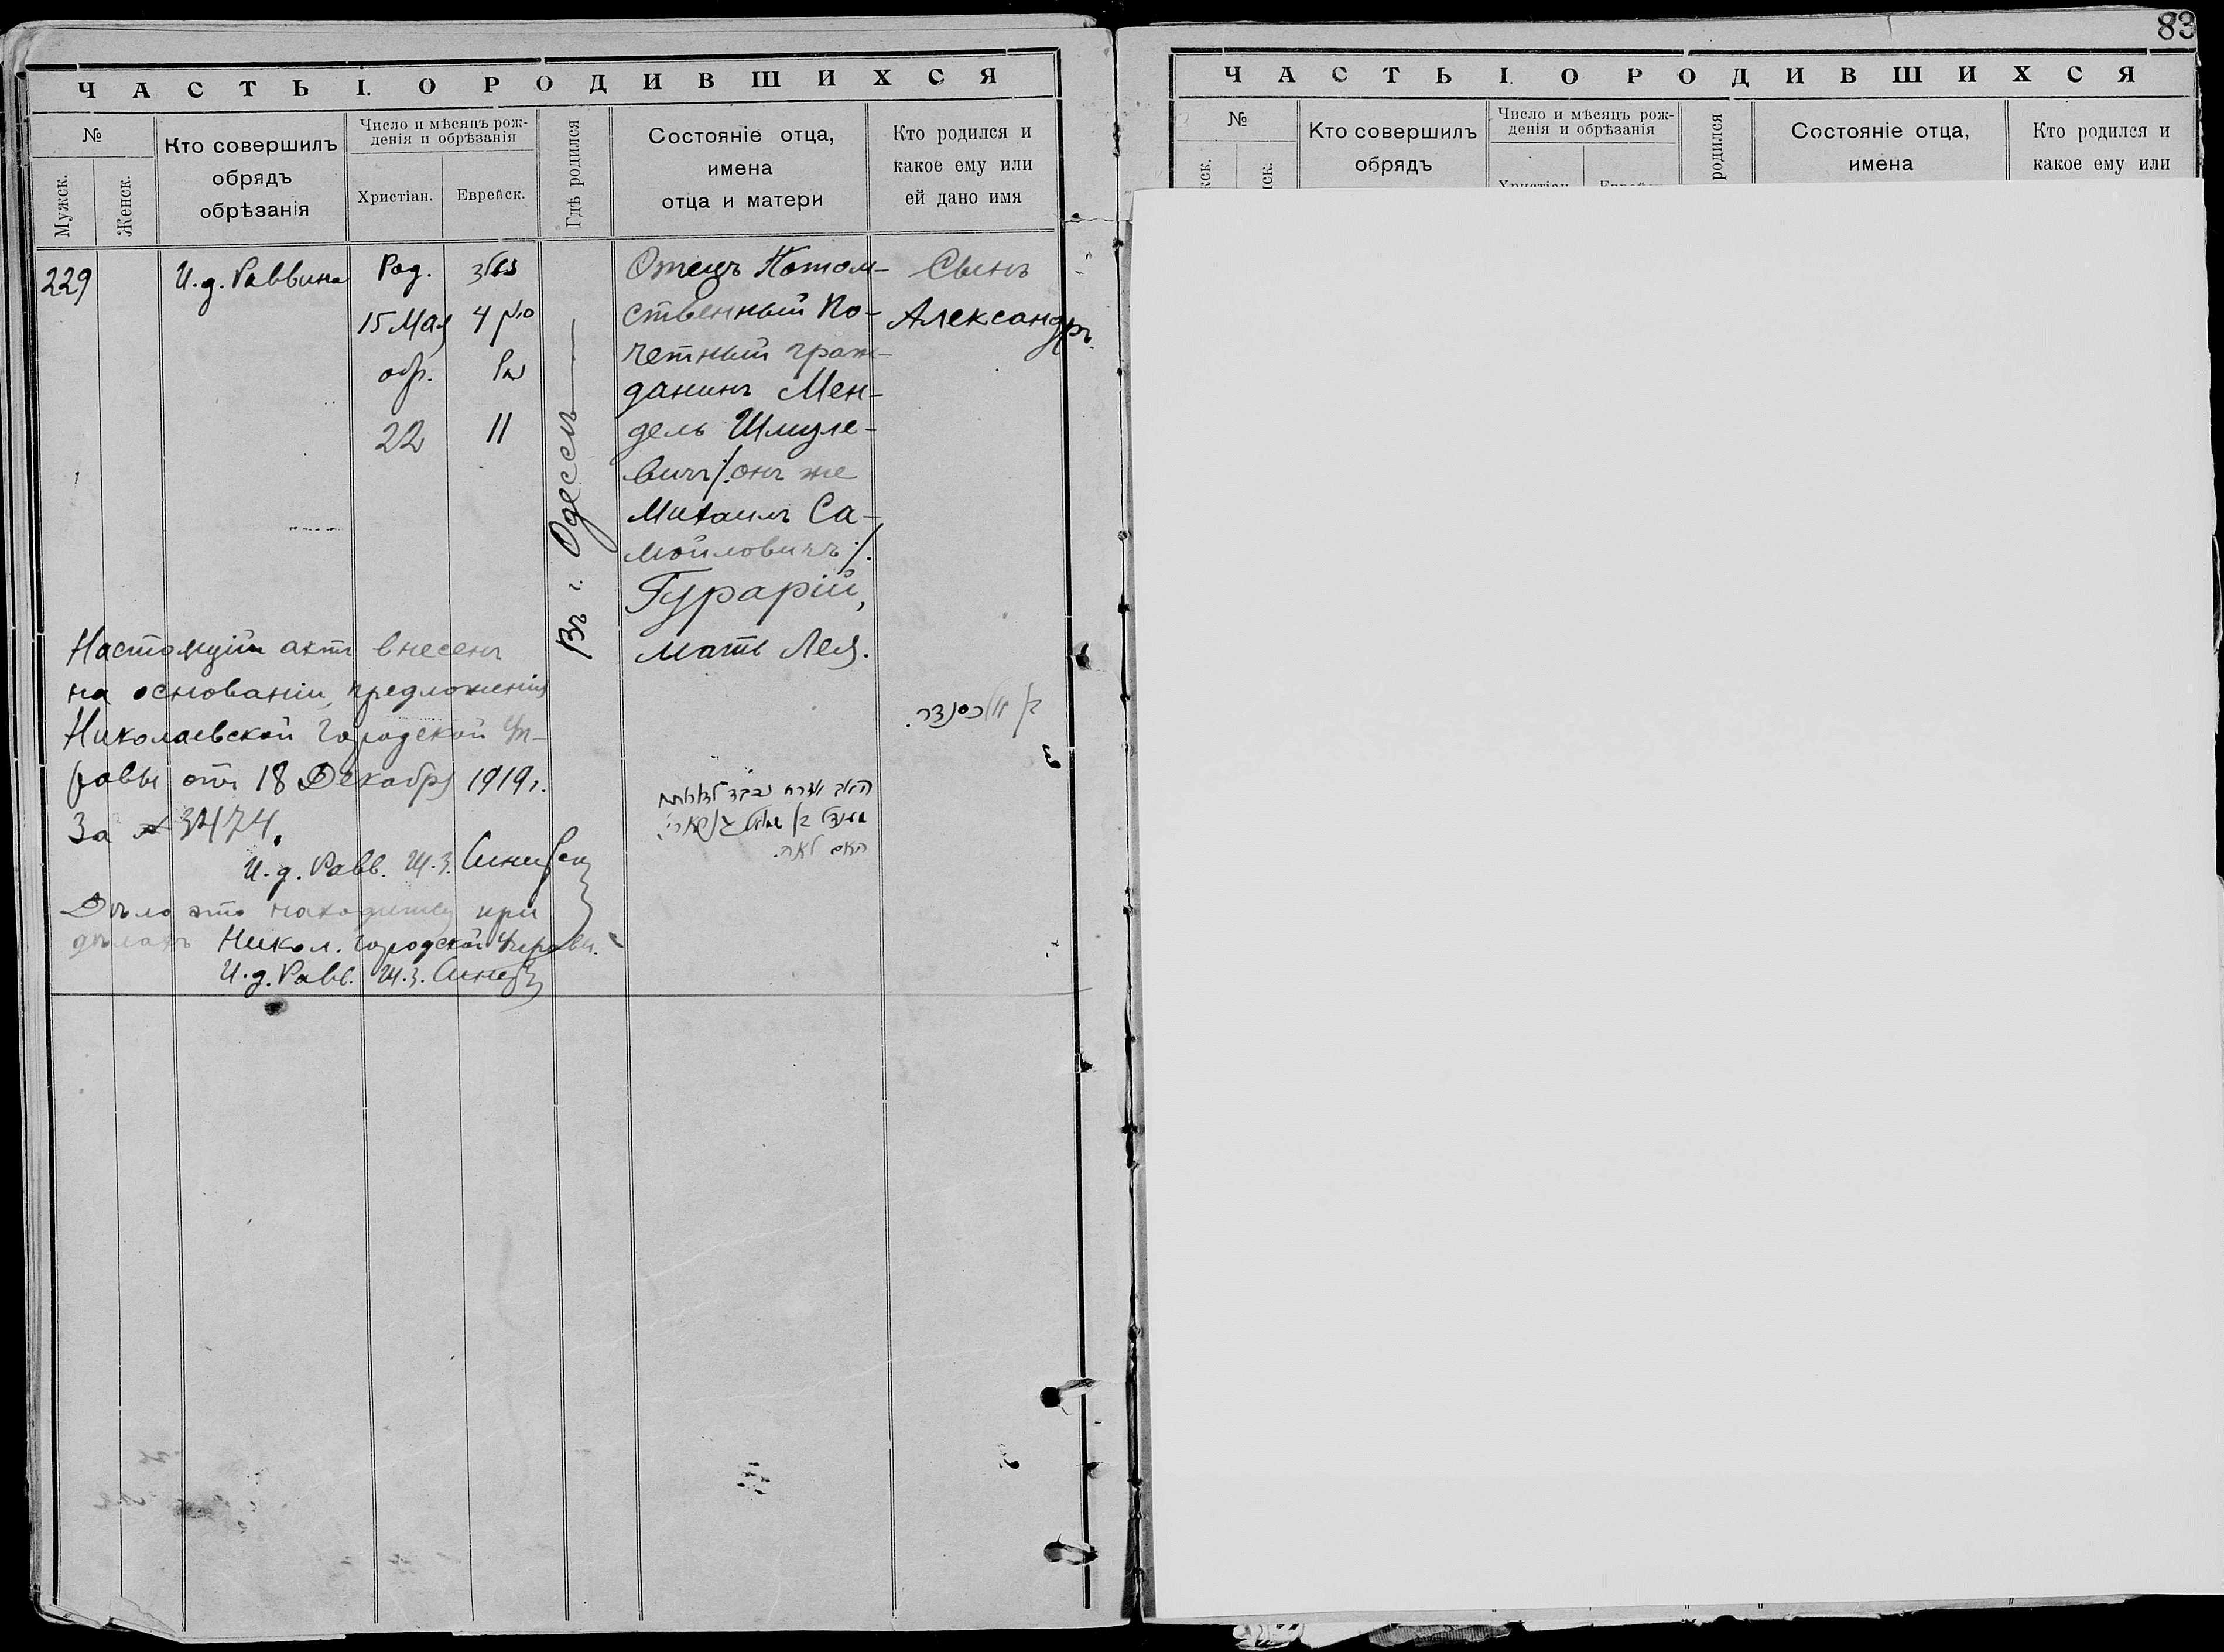 83
ЧАСТЬ I. О РОДИВШИХСЯ
№
Мужск.
Женск.
Кто совершилъ
обрядъ
обрѣзанія
Число и мѣсяцъ рож-
денія и обрѣзанія
Христіан.
Еврейск.
Гдѣ родился
Состояніе отца,
имена
отца и матери
Кто родился и
какое ему или
ей дано имя
229
И.д. Раввина
Род.
15 Мая
обр.
22
נולד
4
11
Въ г. Одессѣ
Отецъ Потом-
ственный По-
четный граж-
данинъ Мен-
дель Шмуле-
вичъ /. онъ же
Михаилъ Са-
мойловичъ ./.
Гурарій,
мать Лея.
Сынъ
Александръ.
בן אלכסנדר.
האב אזרח נכבד לדורותיו
מענדל בן שמואל גוראריי
האם לאה.
Настоящій актъ внесенъ
на основаніи предложенія
Николаевской Городской Уп-
равы отъ 18 Декабря 1919 г.
За № 3474.
И.д. Равв. Ш.З.
Дѣло это находится при
дѣлахъ Никол. Городской Управы.
И.д. Равв. Ш.З.
ЧАСТЬ I. О РОДИВШИХСЯ
№
Кто совершилъ
обрядъ
Число и мѣсяцъ рож-
денія и обрѣзанія
родился
Состояніе отца,
имена
Кто родился и
какое ему или